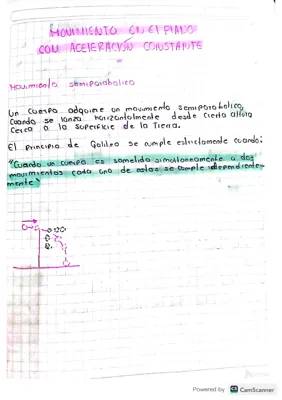 MOVIMIENTO EN El PlANO
CON ACELERACIÓN CONSTANTE
Movimiento semiparabolico
Un cuerpo adquiere un movimiento semiparabolico,
Cuando se lanza horizontalmente desde cierta altura
Cerca a la superficie de la Tierra.
El principio de Galileo se cumple estrictamente cuando:
"Cuando un cuerpo es sometido simultaneamente a dos
movimientos cada uno de estos se cumple independiente-
mente"
Powered by CS CamScanner